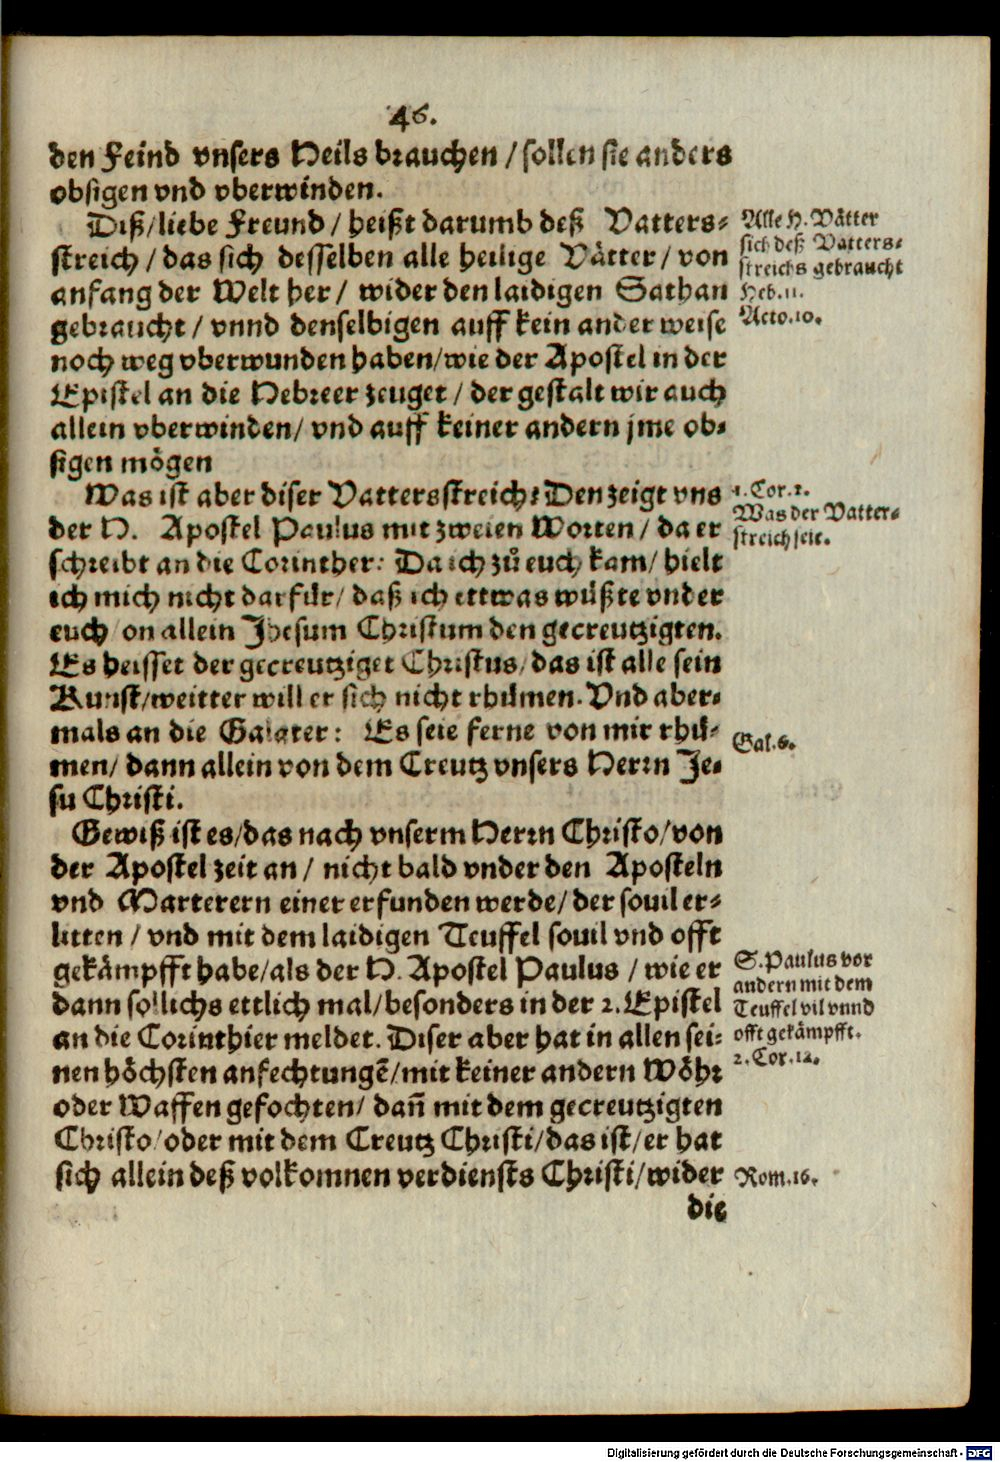 46.
den Feind vnsers Heils brauchen / sollen sie anders
obsigen vnd vberwinden.
Diß / liebe Freund / heißt darumb deß Vatters⸗
streich / das sich desselben alle heilige Vätter / von
anfang der Welt her / wider den laidigen Sathan
gebraucht / vnnd denselbigen auff kein ander weise
noch weg vberwunden haben / wie der Apostel in der
Epistel an die Hebreer zeuget / der gestalt wir auch
allein vberwinden / vnd auff keiner andern jme ob⸗
sigen mögen
Alle H. Vätter
sich deß Vatters⸗
streichs gebraucht
Heb. 11.
Acto. 10.
Was ist aber diser Vattersstreich? Den zeigt vns
der H. Apostel Paulus mit zweien Worten / da er
schreibt an die Corinther: Da ich zů euch kam / hielt
ich mich nicht darfür / daß ich ettwas wüßte vnder
euch on allein Jhesum Christum den gecreutzigten.
Es heisset der gecreutziget Christus / das ist alle sein
Kunst / weitter will er sich nicht rhümen. Vnd aber⸗
mals an die Galater: Es seie ferne von mir rhü⸗
men / dann allein von dem Creutz vnsers Herrn Je⸗
su Christi.
1. Cor. 2.
Was der Vatter⸗
streich seie.
Gal. 6.
Gewiß ist es / das nach vnserm Herrn Christo / von
der Apostel zeit an / nicht bald vnder den Aposteln
vnd Marterern einer erfunden werde / der souil er⸗
litten / vnd mit dem laidigen Teuffel souil vnd offt
gekämpfft habe / als der H. Apostel Paulus / wie er
dann sollichs ettlich mal / besonders in der 2. Epistel
an die Corinthier meldet. Diser aber hat in allen sei⸗
nen höchsten anfechtungē / mit keiner andern Wöhr
oder Waffen gefochten / dañ mit dem gecreutzigten
Christo / oder mit dem Creutz Christi / das ist / er hat
sich allein deß volkomnen verdiensts Christi / wider
die
S. Paulus vor
andern mit dem
Teuffel vil vnnd
offt gekämpfft.
2. Cor. 12.
Rom. 16.
Digitalisierung gefördert durch die Deutsche Forschungsgemeinschaft - DFG